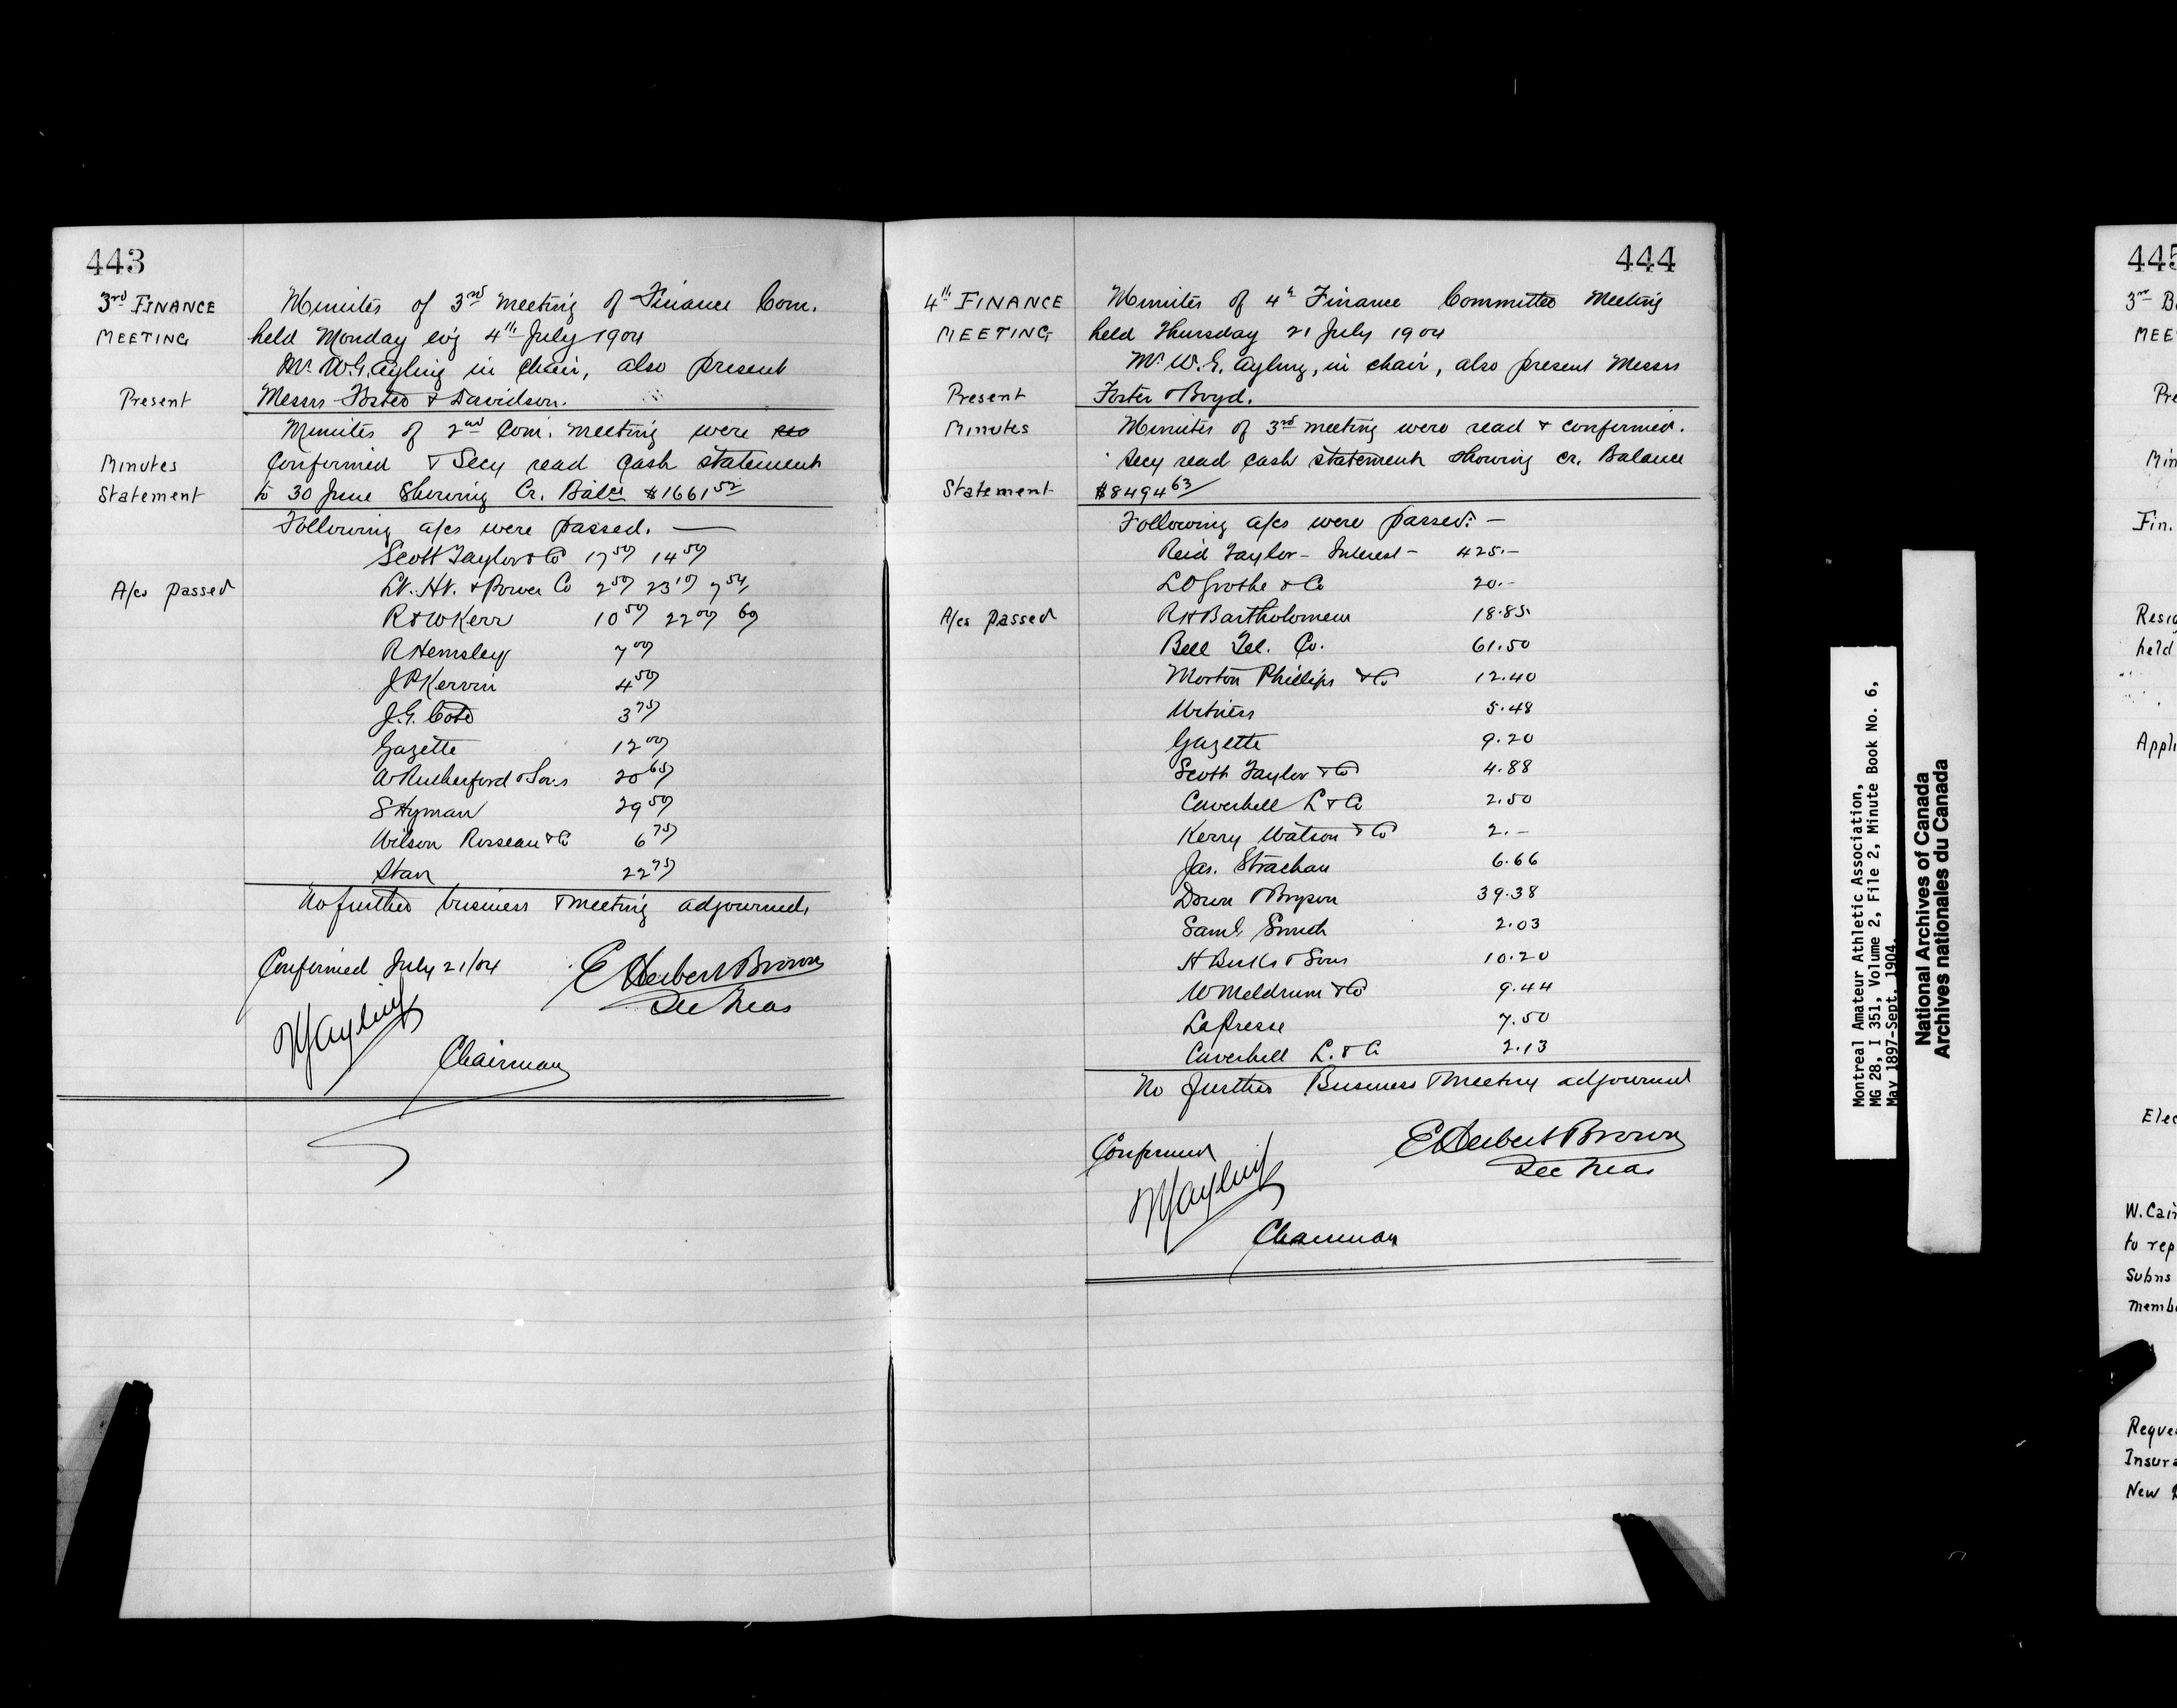 443
3rd FINANCE
MEETING
Minutes of 3rd meeting of Finance Com.
held Monday ev'g 4th July 1904
Mr. W.G. Ayling in Chair, also present
Present
Messrs Foster & Davidson.
Minutes of 2nd Com. meeting were
Minutes
Confirmed & Secy read Cash statement
Statement
to 30 June Showing Cr. Balce $1661 52
Following a/cs were passed. —
Scott Taylor & Co 17 50 14 50
A/cs passed
Lt. Ht. & Power Co 2 50 23 10 7 54
R & W Kerr 10 50 22 00 60
R Hemsley 7 00
J P Kervin 4 50
J.G. Coté 3 75
Gazette 12 00
A Rutherford & Sons 20 65
S Hyman 29 50
Wilson Rosseau & Co 6 75
Star 22 75
No further business & meeting adjourned.
Confirmed July 21/04
E Herbert Brown
Sec Treas
W G Ayling
Chairman
444
4th FINANCE
MEETING
Minutes of 4th Finance Committee Meeting
held Thursday 21 July 1904
Mr. W.G. Ayling, in chair, also present Messrs
Present
Foster & Boyd.
Minutes
Minutes of 3rd meeting were read & confirmed.
Secy read cash statement showing cr. Balance
Statement
$8494 63
Following a/cs were passed: —
Reid Taylor - Interest - 425.-
L O Grothe & Co 20.-
A/cs passed
R H Bartholomew 18.85
Bell Tel. Co. 61.50
Morton Phillips & Co 12.40
Witness 5.48
Gazette 9.20
Scott Taylor & Co 4.88
Caverhill L & Co 2.50
Kerry Watson & Co 2.-
Jas. Strachan 6.66
Drewn & Bryson 39.38
Saml. Smith 2.03
H Birks & Sons 10.20
W Meldrum & Co 9.44
La Presse 7.50
Caverhill L. & Co 2.13
No further Business & meeting adjourned
Confirmed
E Herbert Brown
Sec Treas
W G Ayling
Chairman
Montreal Amateur Athletic Association,
MG 28, I 351, Volume 2, File 2, Minute Book No. 6,
May 1897-Sept. 1904.
National Archives of Canada
Archives nationales du Canada
445
3rd B
MEE
Pre
Min
Fin.
Resig
held
Appli
Elec
W. Cair
to rep
Subns
memb
Reque
Insura
New